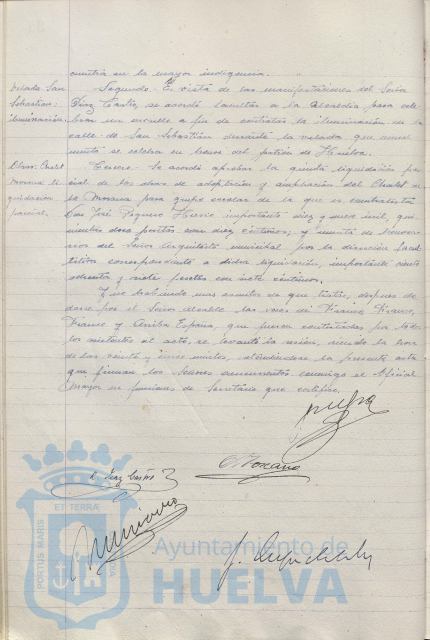 cuentra en la mayor indigencia.
Velada San
Sebastian:
iluminación.
Segundo. En vista de las manifestaciones del Señor
Díaz Castro, se acordó facultar a la Alcaldía para cele
brar un concurso a fin de contratar la iluminación en la
calle de San Sebastián durante la velada que anual
mente se celebra en honor del patrón de Huelva.
Obras Chalet
Morana li
quidación
parcial.
Tercero. Se acordó aprobar la quinta liquidación par
cial de las obras de adaptación y ampliación del Chalet de
la Morana para grupo escolar de la que es contratista
Don José importante diez y nueve mil, qui
nientas doce pesetas con diez céntimos; y minuta de honora
rios del Señor Arquitecto municipal por la dirección facul
tativa correspondiente a dicha liquidación, importante ciento
ochenta y siete pesetas con siete céntimos.
Y no habiendo mas asuntos de que tratar, después de
darse por el Señor Alcalde las voces de Franco, Franco,
Franco y Arriba España, que fueron contestadas por todos
los asistentes al acto, se levantó la sesión, siendo la hora
de las veinte y minutos, extendiéndose la presente acta
que firman los Señores concurrentes conmigo el Oficial
Mayor en funciones de Secretario que certifico.
Díaz Castro
Morano
PORTUS MARIS ET TERRAE
Ayuntamiento de
HUELVA